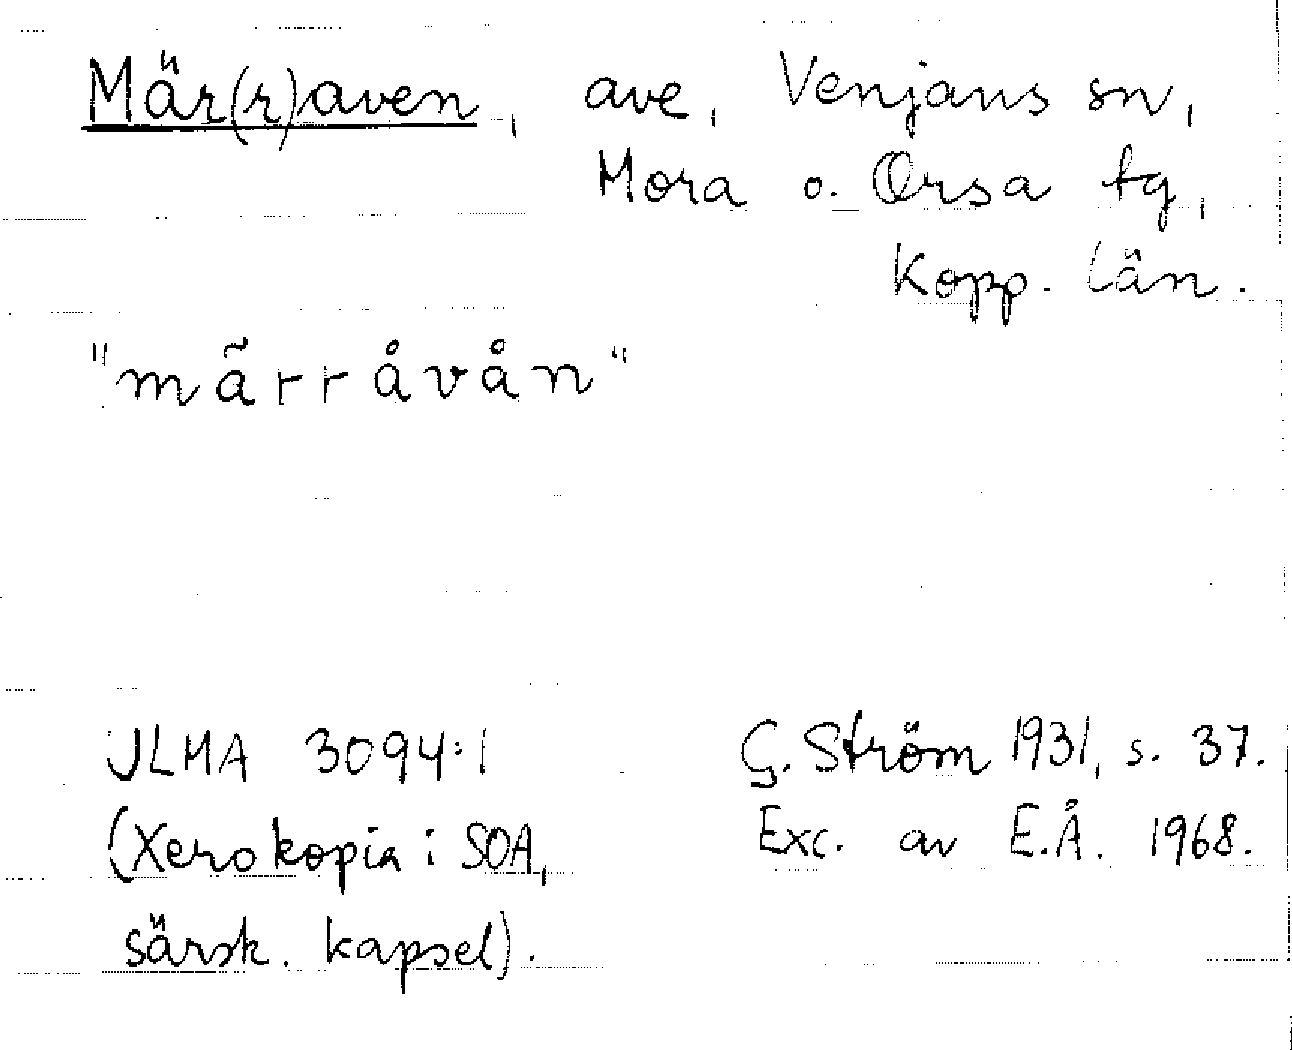 Mär(r)aven, ave, Venjans sn,
Mora o. Orsa tg,
Kopp. län.
"mãrråvån"
ULMA 3094:1
(Xerokopia i SOA,
särsk. kapsel).
G. Ström 1931, s. 37.
Exc. av E.Å. 1968.